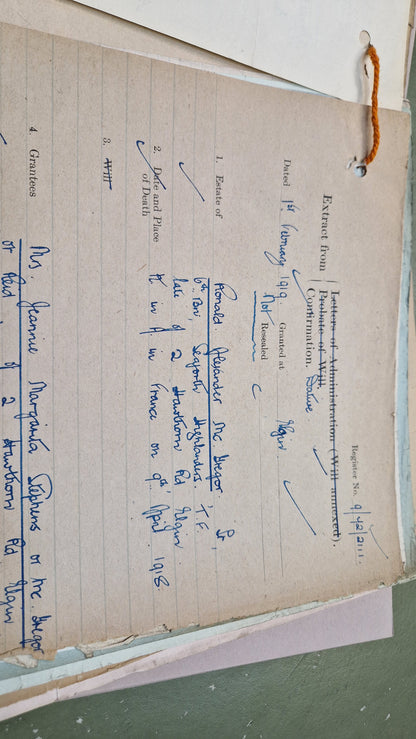 Register No. 9/42/2111.
Extract from Letters of Administration (Will annexed).
Probate of Will
Confirmation. Dative
Dated 1st February 1919 Granted at Elgin
Not Resealed
1. Estate of Ronald Alexander Mc Gregor Pt
6th Bn. Seaforth Highlanders. T.F.
late of 2 Hawthorn Rd Elgin
2. Date and Place of Death K in A in France on 9th April 1918
3. Will
4. Grantees Mrs. Jeannie Margarita Stephens or Mc Gregor
or Reid, of 2 Hawthorn Rd Elgin